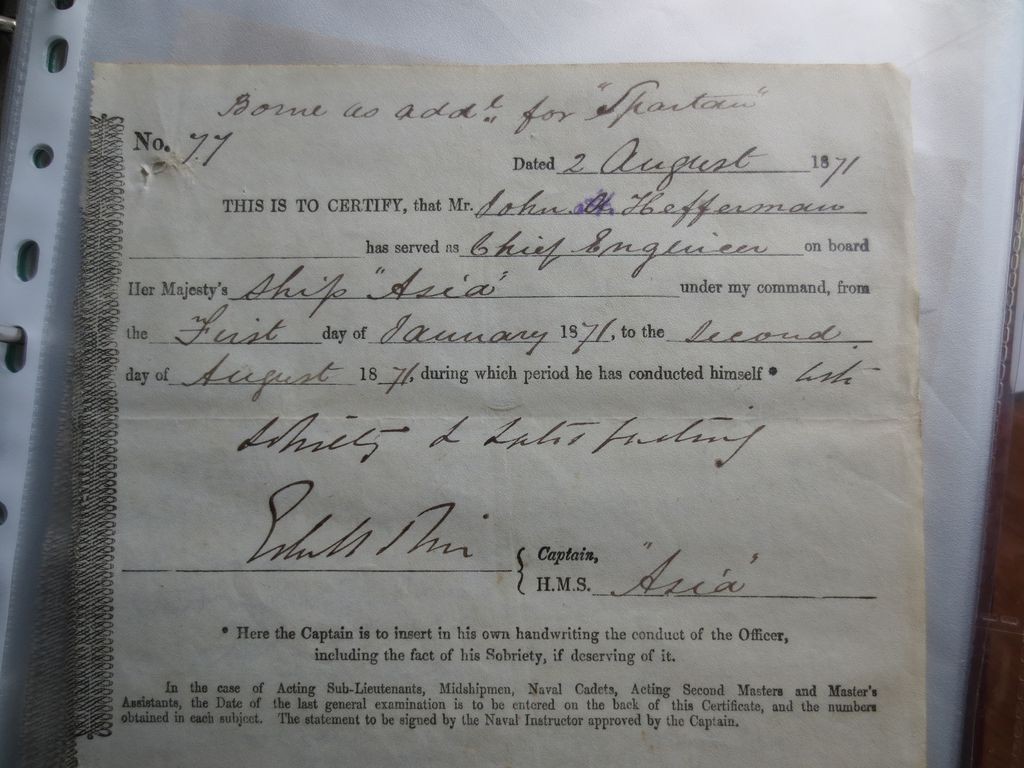 Borne as addl. for "Spartan"
No. 77
Dated 2 August 1871
THIS IS TO CERTIFY, that Mr. John H. Hefferman
has served as Chief Engineer on board
Her Majesty's Ship "Asia" under my command, from
the First day of January 1871, to the Second
day of August 1871, during which period he has conducted himself * with
sobriety & satisfactorily
Captain,
H.M.S. "Asia"
* Here the Captain is to insert in his own handwriting the conduct of the Officer,
including the fact of his Sobriety, if deserving of it.
In the case of Acting Sub-Lieutenants, Midshipmen, Naval Cadets, Acting Second Masters and Master's
Assistants, the Date of the last general examination is to be entered on the back of this Certificate, and the numbers
obtained in each subject. The statement to be signed by the Naval Instructor approved by the Captain.